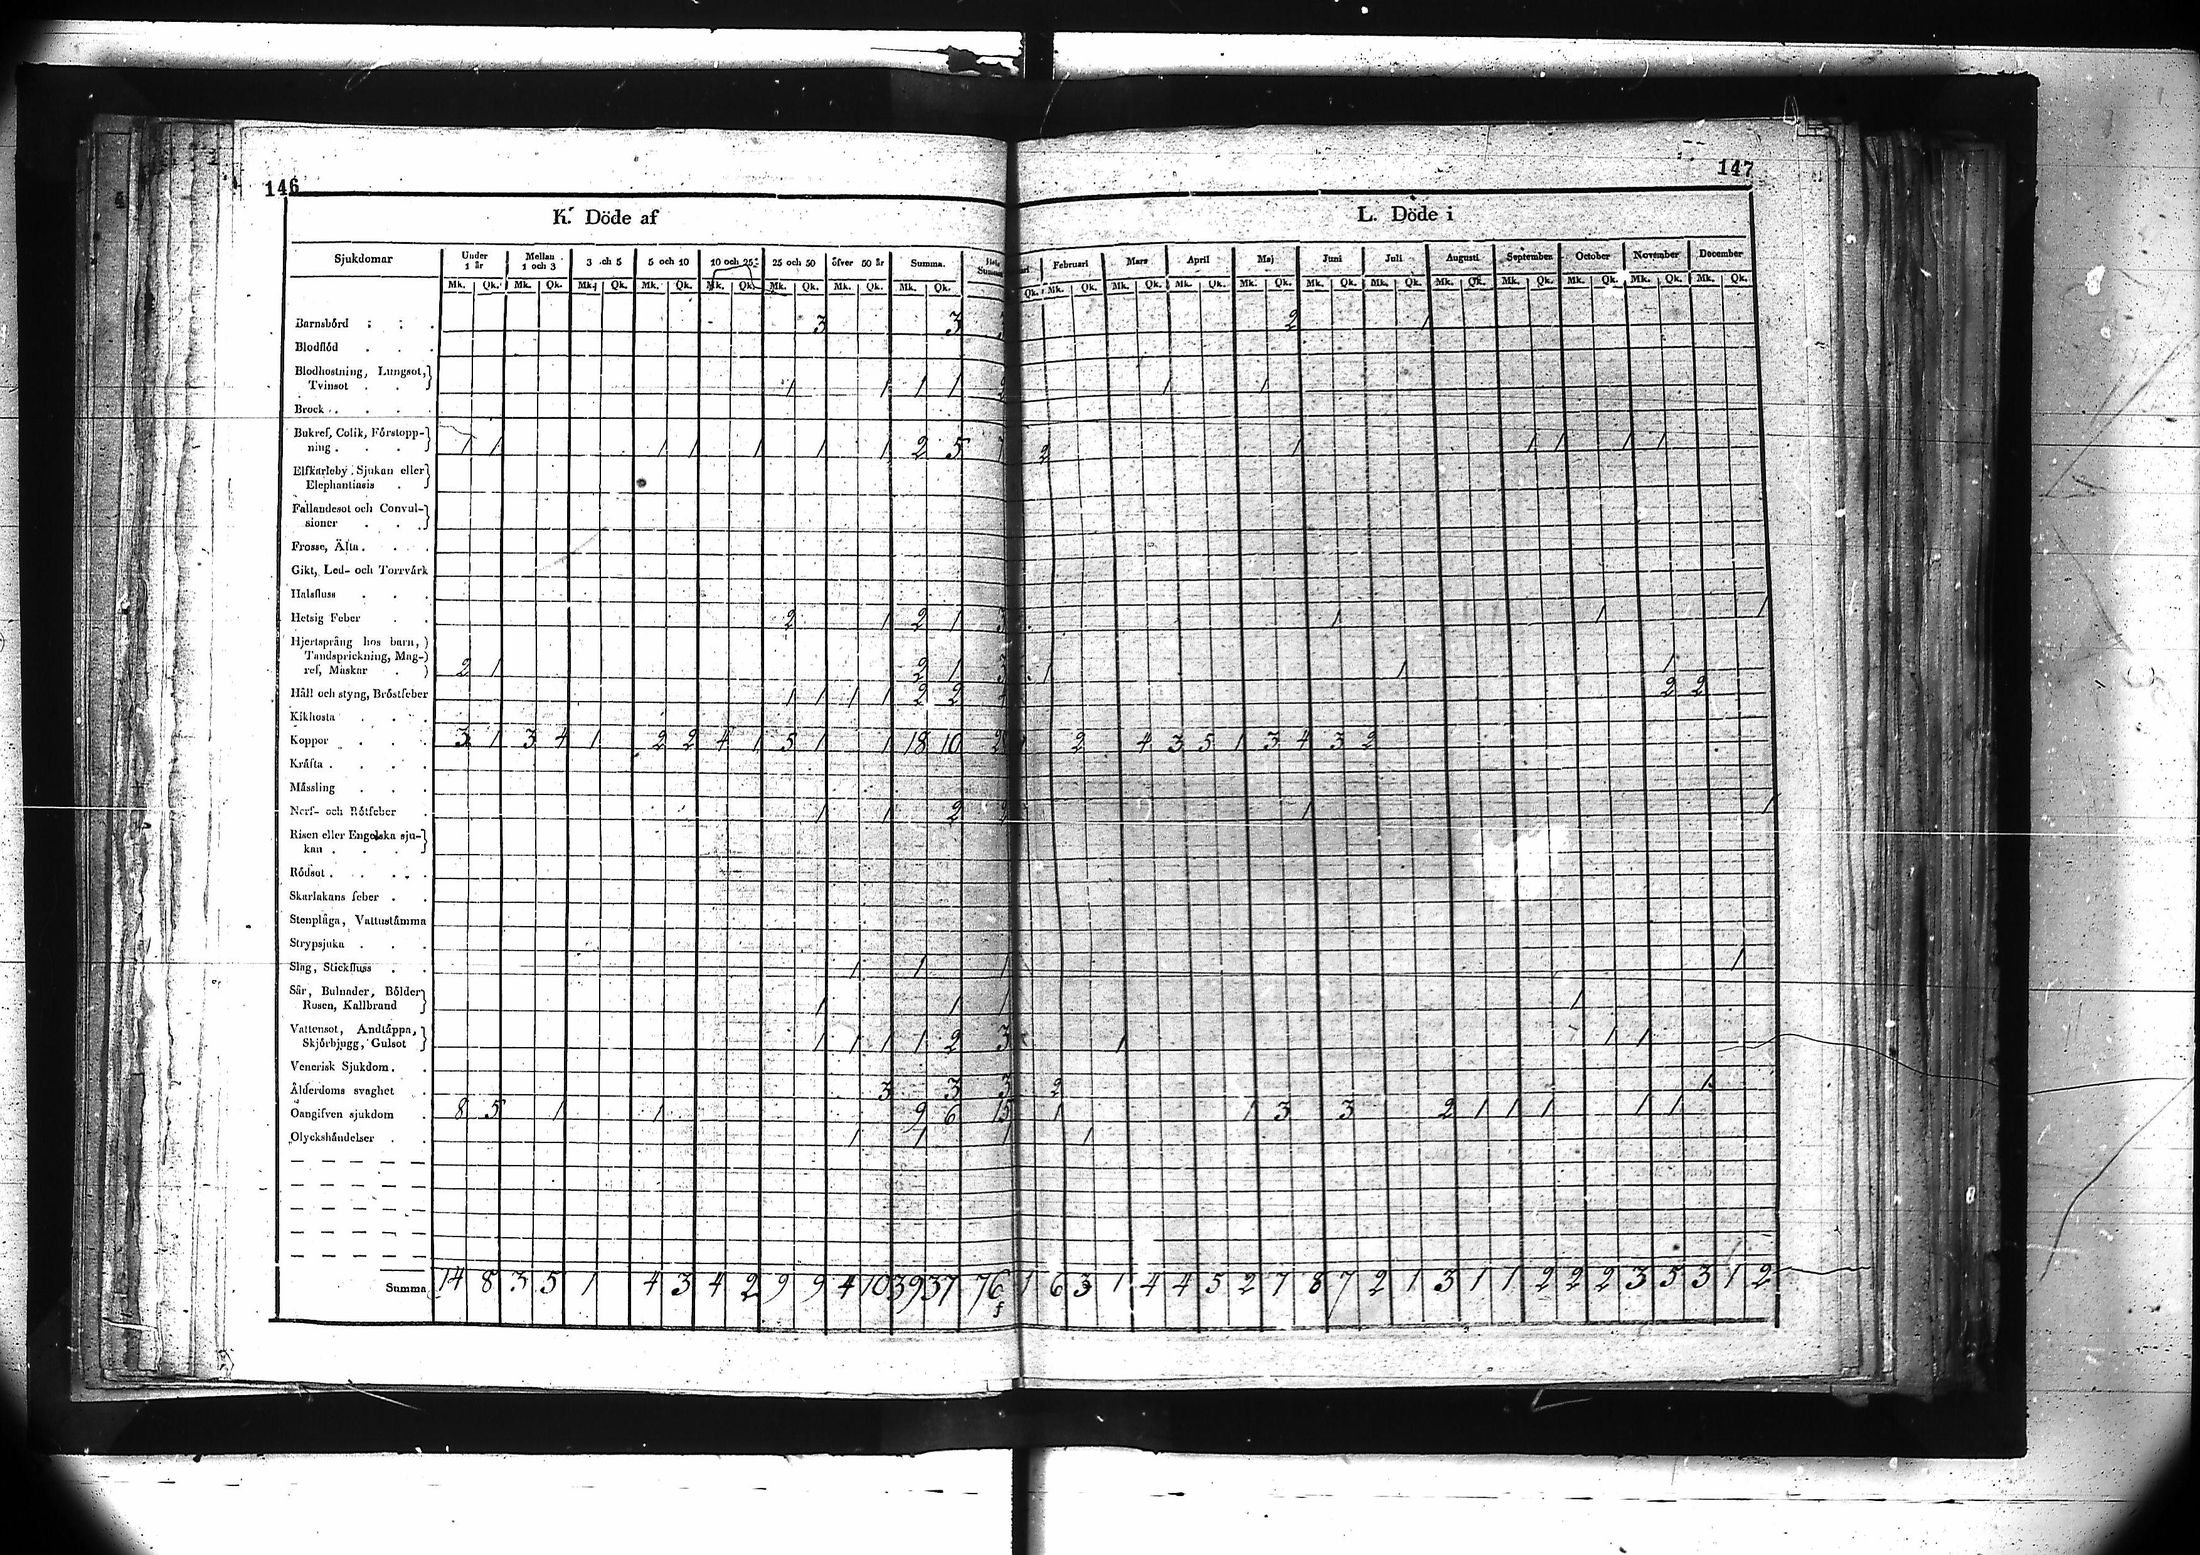 146
147
K. Döde af
L. Döde i
Sjukdomar Under 1 år Mellan 1 och 3 3 och 5 5 och 10 10 och 25 25 och 50 öfver 50 år Summa. Hela Summan Februari Mars April Maj Juni Juli Augusti September October November December
Mk. Qk. Mk. Qk. Mk. Qk. Mk. Qk. Mk. Qk. Mk. Qk. Mk. Qk. Mk. Qk. Qk. Mk. Qk. Mk. Qk. Mk. Qk. Mk. Qk. Mk. Qk. Mk. Qk. Mk. Qk. Mk. Qk. Mk. Qk. Mk. Qk. Mk. Qk.
Barnsbörd 3 3 2 1
Blodflöd
Blodhostning, Lungsot,
Tvinsot 1 1 1 1 2 1 1
Brock
Bukref, Colik, Förstopp-
ning 1 1 1 1 1 1 1 2 5 7 2 1 1 1 1 1
Elfkarleby Sjukan eller
Elephantiasis
Fallandesot och Convul-
sioner
Frosse, Älta
Gikt, Led- och Torrvärk
Halsfluss
Hetsig Feber 2 1 2 1 3 1 1 1
Hjertsprång hos barn,
Tandsprickning, Mag-
ref, Maskar 2 1 2 1 3 1 1 1
Håll och styng, Bröstfeber 1 1 1 1 2 2 4 2 2
Kikhosta
Koppor 3 1 3 4 1 2 2 4 1 5 1 1 18 10 28 1 2 4 3 5 1 3 4 3 2
Kräfta
Mässling
Nerf- och Rötfeber 1 1 2 2 1 1
Risen eller Engelska sju-
kan
Rödsot
Skarlakans feber
Stenplåga, Vattustämma
Strypsjuka
Slag, Stickfluss 1 1 1 1
Sår, Bulnader, Bölder
Rosen, Kallbrand 1 1 1 1
Vattensot, Andtäppa,
Skjörbjugg, Gulsot 1 1 1 1 2 3 1 1 1
Venerisk Sjukdom
Ålderdoms svaghet 3 3 3 2 1
Oangifven sjukdom 8 5 1 1 9 6 15 1 1 3 3 2 1 1 1 1 1
Olyckshändelser 1 1 1 1
Summa 14 8 3 5 1 4 3 4 2 9 9 4 10 39 37 76 1 6 3 1 4 4 5 2 7 8 7 2 1 3 1 1 2 2 2 3 5 3 1 2